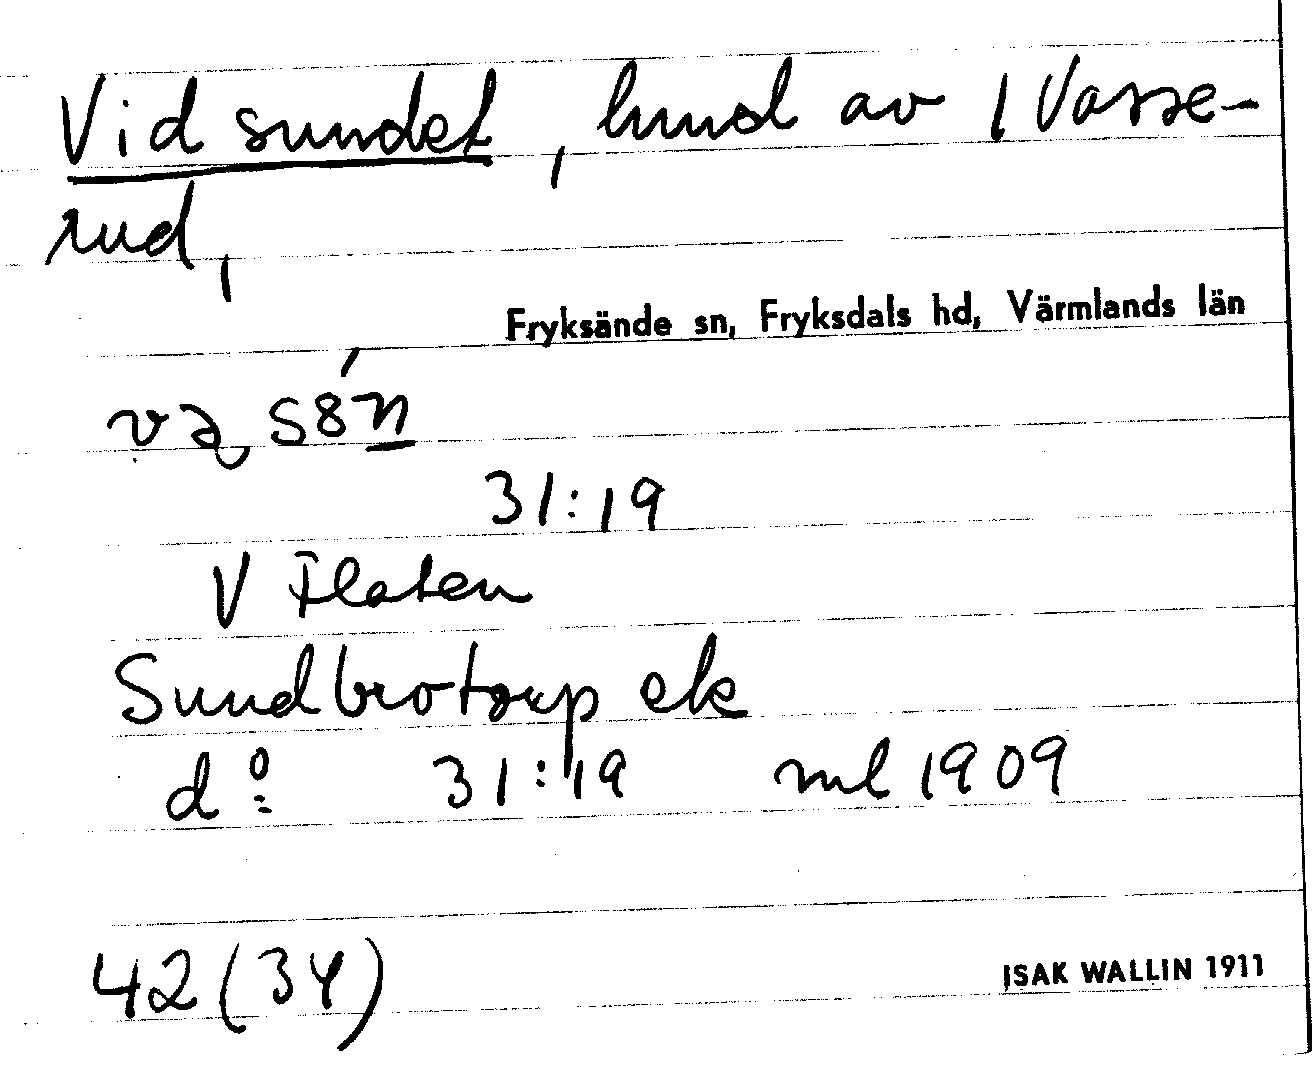 Vid sundet, lund av 1 Vasse-
rud,
Fryksände sn, Fryksdals hd, Värmlands län
31:19
V Flaten
Sundbrotorp ek
do 31:19 ml 1909
42(34)
ISAK WALLIN 1911